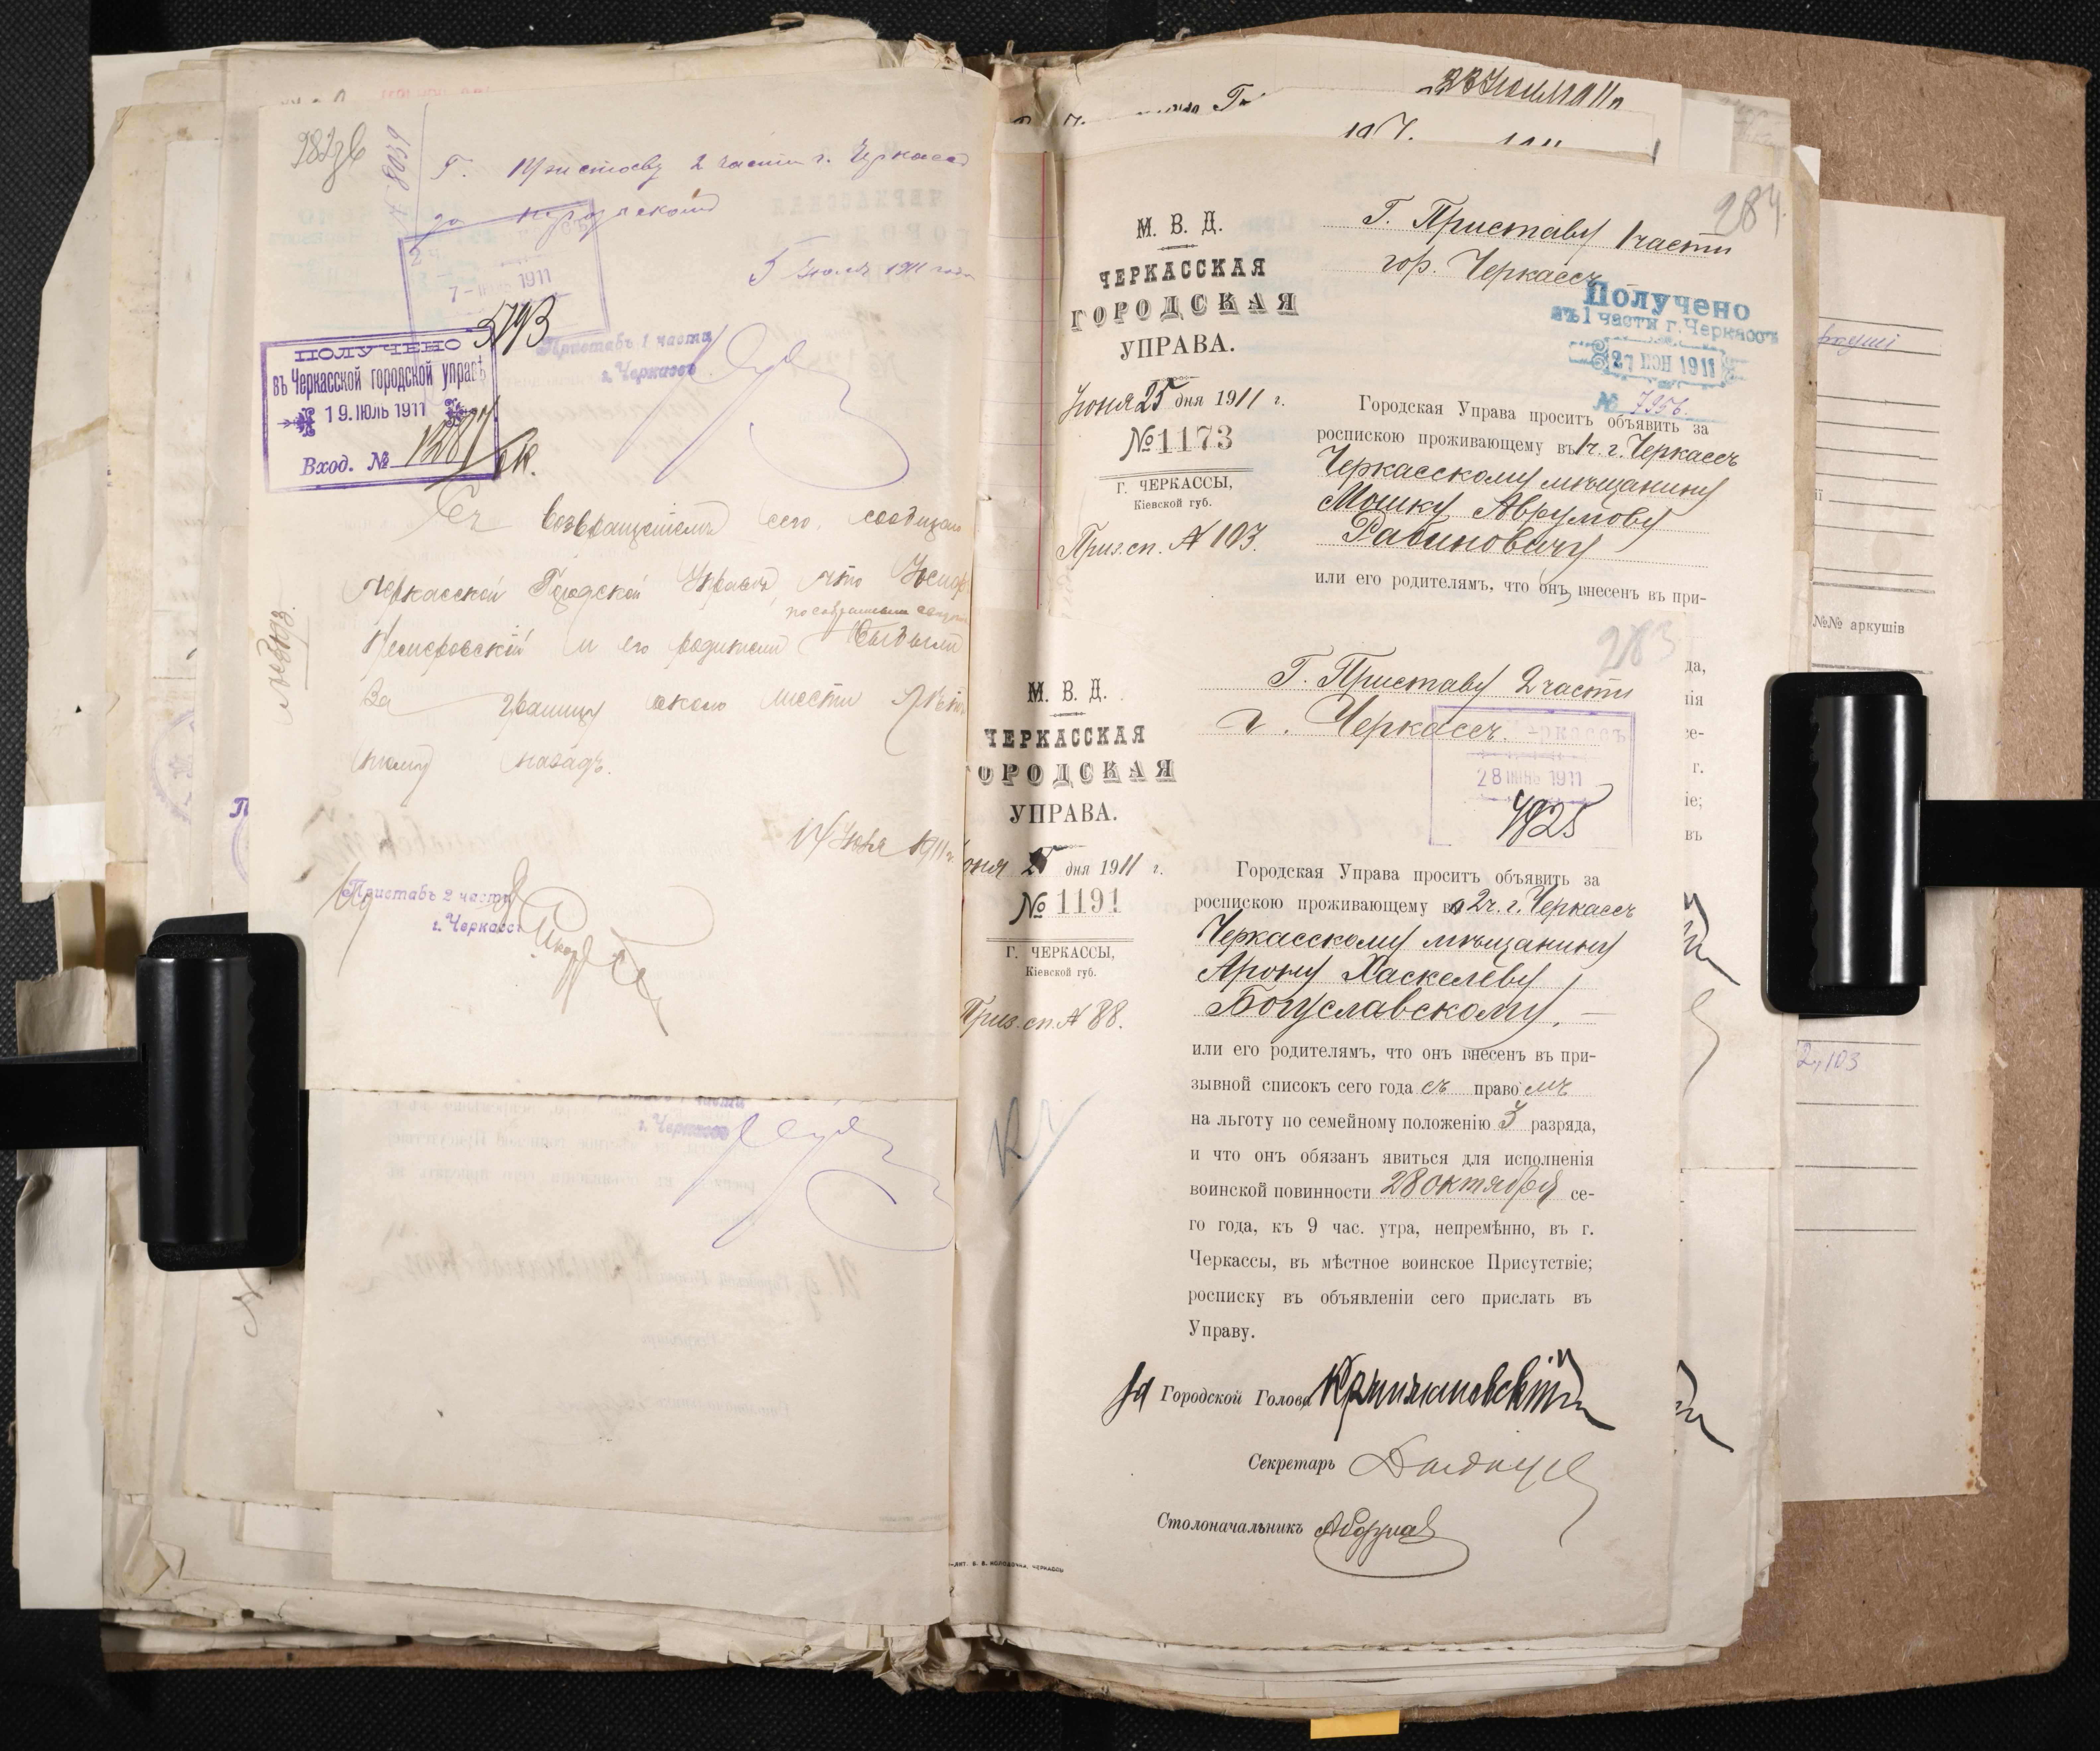 282 зв
№ 8039
Г. Приставу 2 части г. Черкассъ
7 - 1911
5 Іюля 1911 года
5793
Приставъ 1 части
г. Черкассъ
ПОЛУЧЕНО
въ Черкасской городской управѣ
19. ІЮЛЬ 1911
Вход. №
Съ возвращеніемъ сего, сообщаю
Черкасской Городской Управѣ, что
и его родители выбыли
за границу около шести лѣтъ
тому назадъ.
1911 г.
Приставъ 2 части
г. Черкассъ
г. Черкассъ
284
М. В. Д.
ЧЕРКАССКАЯ
ГОРОДСКАЯ
УПРАВА.
Іюня 25 дня 1911 г.
№ 1173
Г. ЧЕРКАССЫ,
Кіевской губ.
Приз. сп. № 103.
Г. Приставу 1 части
гор. Черкассъ
Получено
въ 1 части г. Черкассъ
27 ІЮН 1911
№ 7256.
Городская Управа проситъ объявить за
роспискою проживающему въ 1 ч. г. Черкассъ
Черкасскому мѣщанину
Мошку Аврумову
Рабиновичу
или его родителямъ, что онъ внесенъ въ при-
283
М. В. Д.
ЧЕРКАССКАЯ
ОРОДСКАЯ
УПРАВА.
юня 25 дня 1911 г.
№ 1191
Г. ЧЕРКАССЫ,
Кіевской губ.
Приз. сп. № 88.
Г. Приставу 2 части
г. Черкассъ.
28 ІЮНЬ 1911
4925
Городская Управа проситъ объявить за
роспискою проживающему въ 2 ч. г. Черкассъ
Черкасскому мѣщанину
Арону Хаскелеву
Богуславскому,
или его родителямъ, что онъ внесенъ въ при-
зывной списокъ сего года съ правомъ
на льготу по семейному положенію 3 разряда,
и что онъ обязанъ явиться для исполненія
воинской повинности 28 октября се-
го года, къ 9 час. утра, непремѣнно, въ г.
Черкассы, въ мѣстное воинское Присутствіе;
росписку въ объявленіи сего прислать въ
Управу.
Городской Голова
Секретарь
Столоначальникъ
№№ аркушів
2, 103